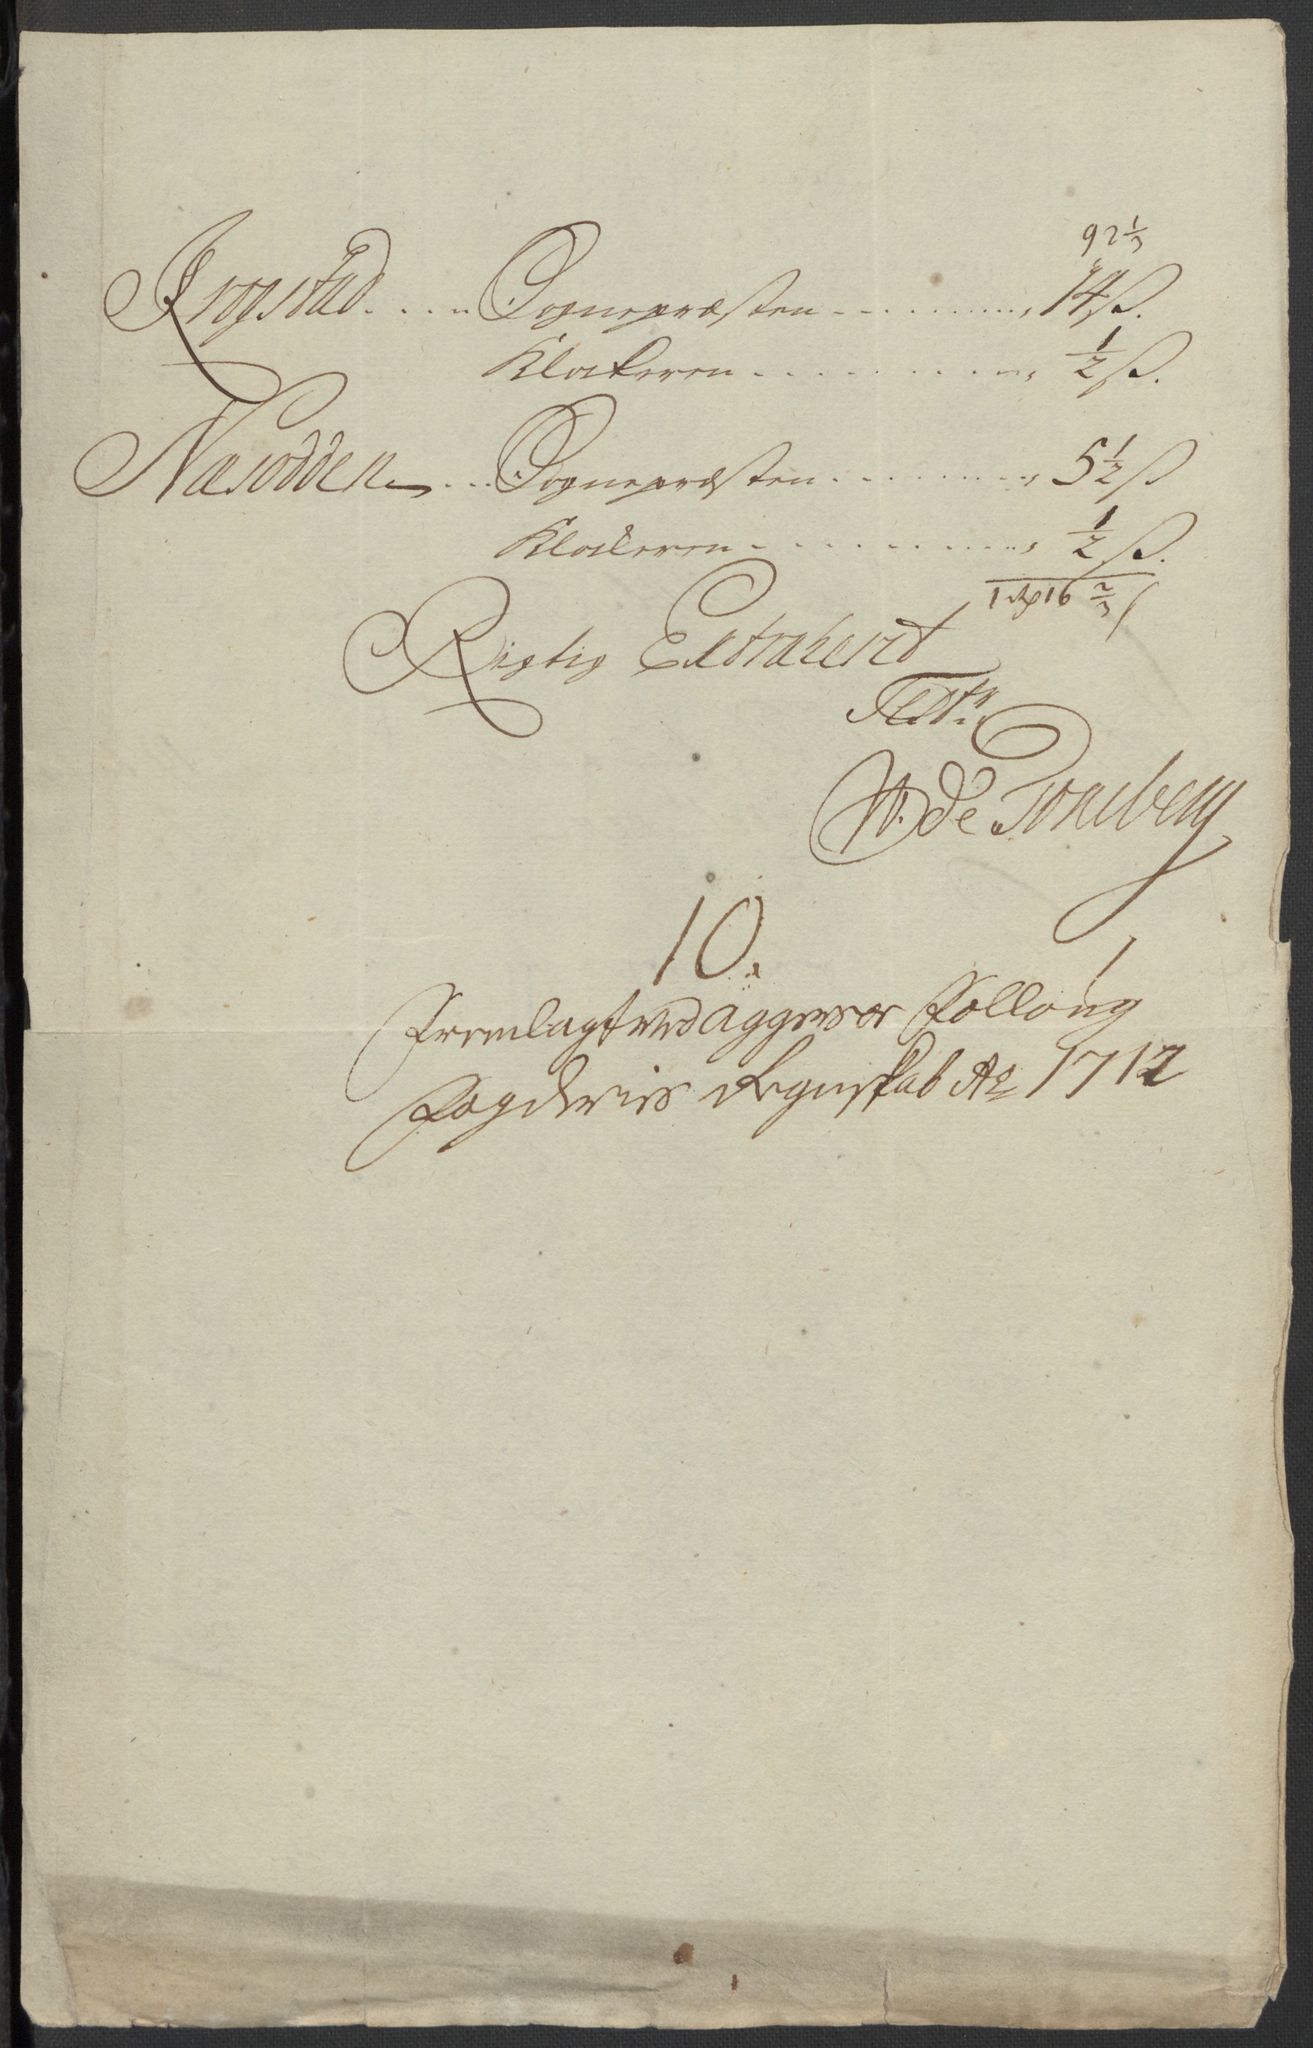 92 1/3
Krogstad . . . . Sognepræsten . . . . . . . . . 14 ß.
Klokeren . . . . . . . . . . . 1/2 ß.
Næsodden . . . Sognepræsten . . . . . . . . . 5 1/2 ß
Klokeren . . . . . . . . . . . 1/2 ß.
1 rdr 16 2/3 ß
Rigtig Extraherit
Test:
de Tonsberg
10.
Fremlagt ved Aggers og Folloug
Fogderies Regnskab Ao 1712